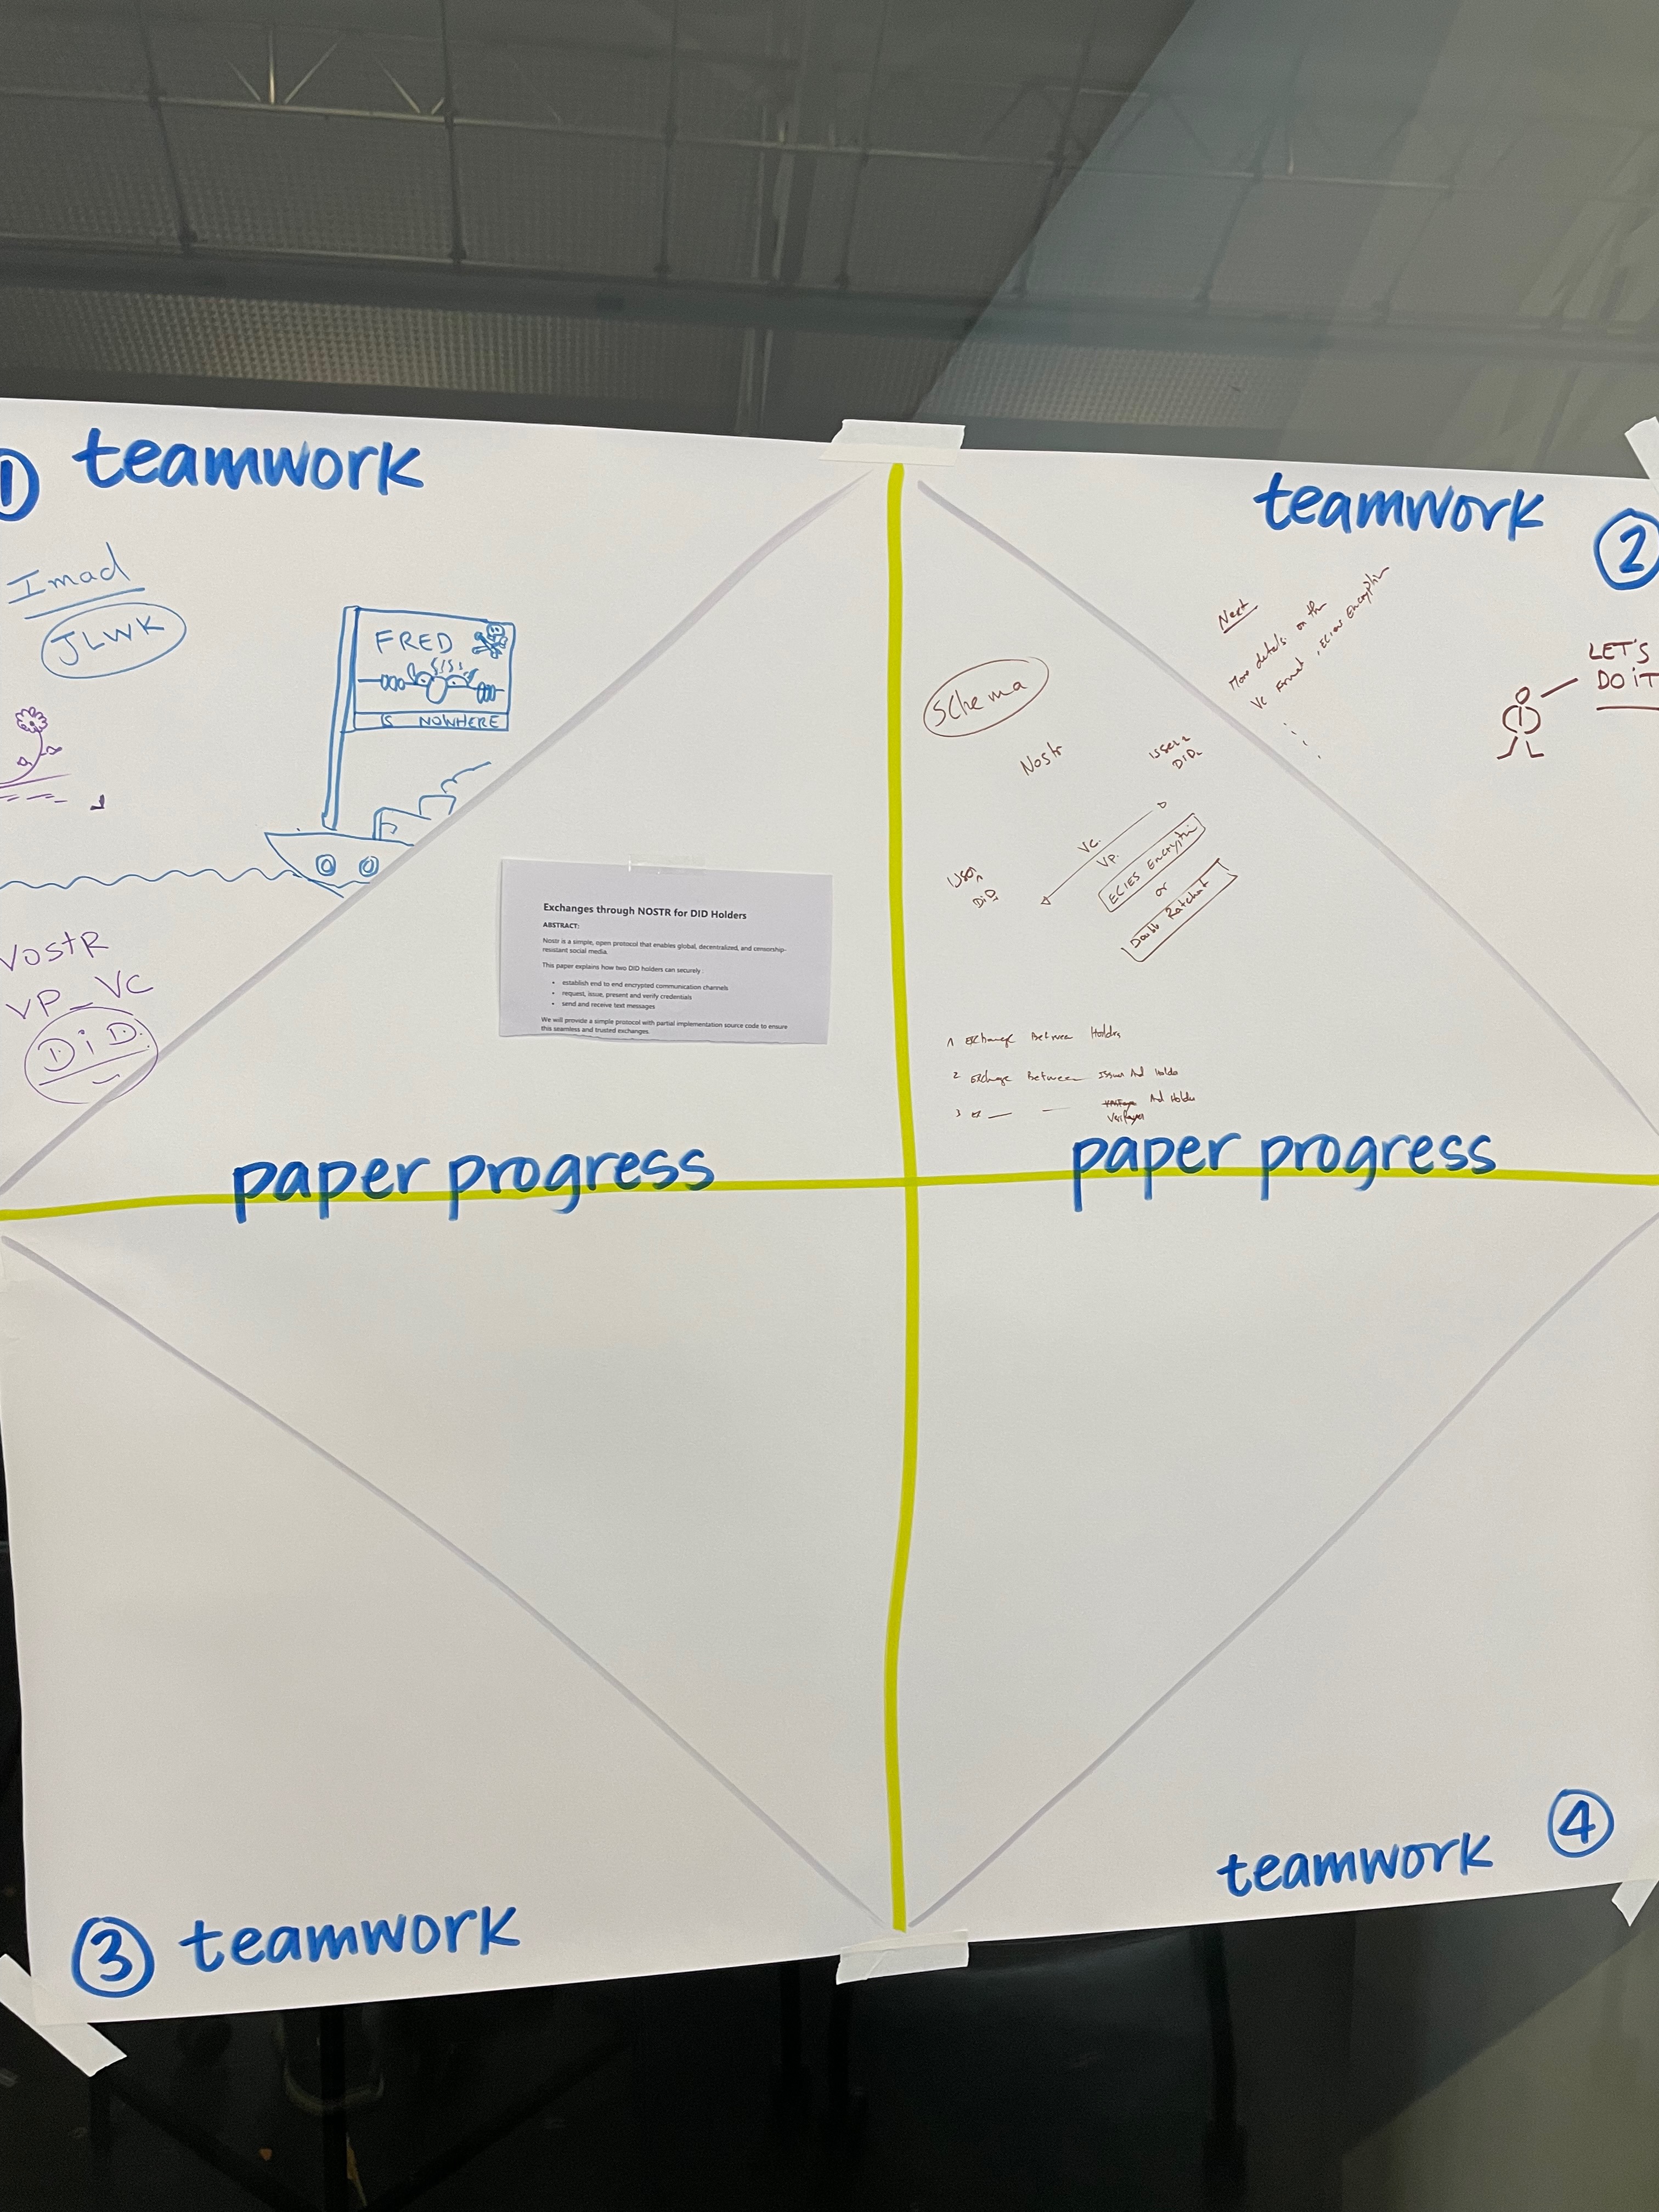 1 teamwork
Imad
JLWK
FRED
IS NOWHERE
NostR
VP_VC
DiD
Exchanges through NOSTR for DID Holders
ABSTRACT:
Nostr is a simple, open protocol that enables global, decentralized, and censorship-
resistant social media.
This paper explains how two DID holders can securely
• establish end to end encrypted communication channels
• request, issue, present and verify credentials
• send and receive text messages
We will provide a simple protocol with partial implementation source code to ensure
this seamless and trusted exchanges
paper progress
teamwork
2
Next
More details on the
VC Format, ECIES Encryption
LET'S
DO iT
Schema
Nostr
User 2
DiD2
VC
VP
ECIES Encrypti
or
Double Ratchet
User 1
DiD1
1 Exchange Between Holders
2 Exchange Between Issuer And Holde
3 Ex And Holder
Verifier
paper progress
3 teamwork
teamwork 4